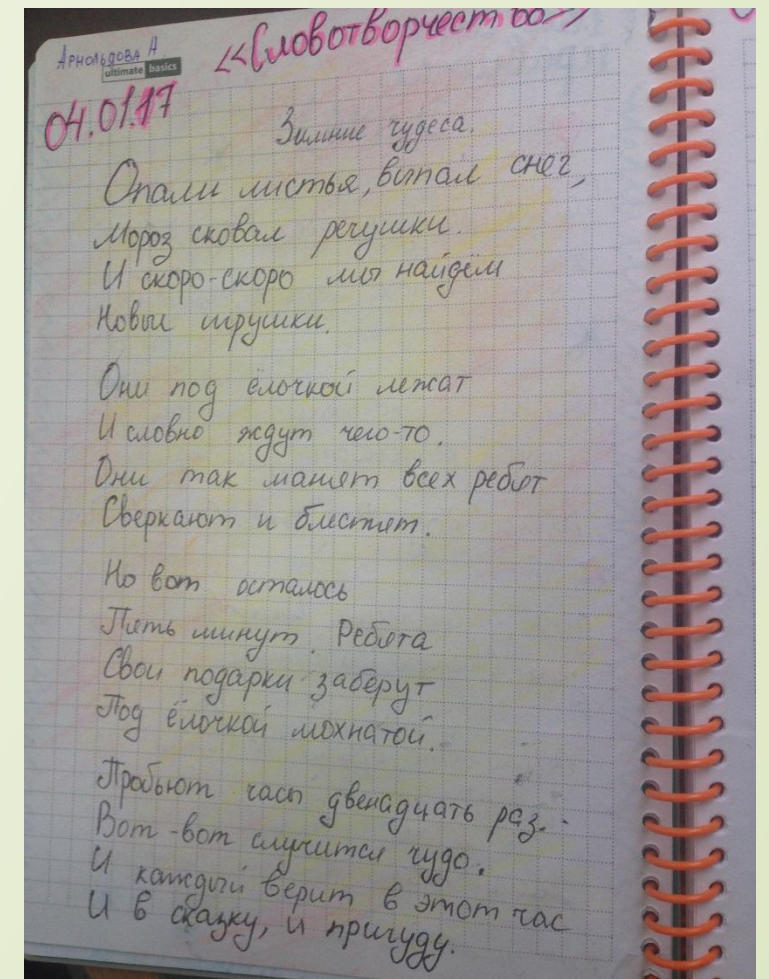 Арнольдова А.
ultimate basics
«Словотворчество»
04.01.17
Зимние чудеса.
Опали листья, выпал снег,
Мороз сковал речушки.
И скоро-скоро мы найдём
Новые игрушки.
Они под ёлочкой лежат
И словно ждут чего-то.
Они так манят всех ребят
Сверкают и блестят.
Но вот осталось
Пять минут. Ребята
Свои подарки заберут
Под ёлочкой мохнатой.
Пробьют часы двенадцать раз.
Вот-вот случится чудо.
И каждый верит в этот час
И в сказку, и причуду.